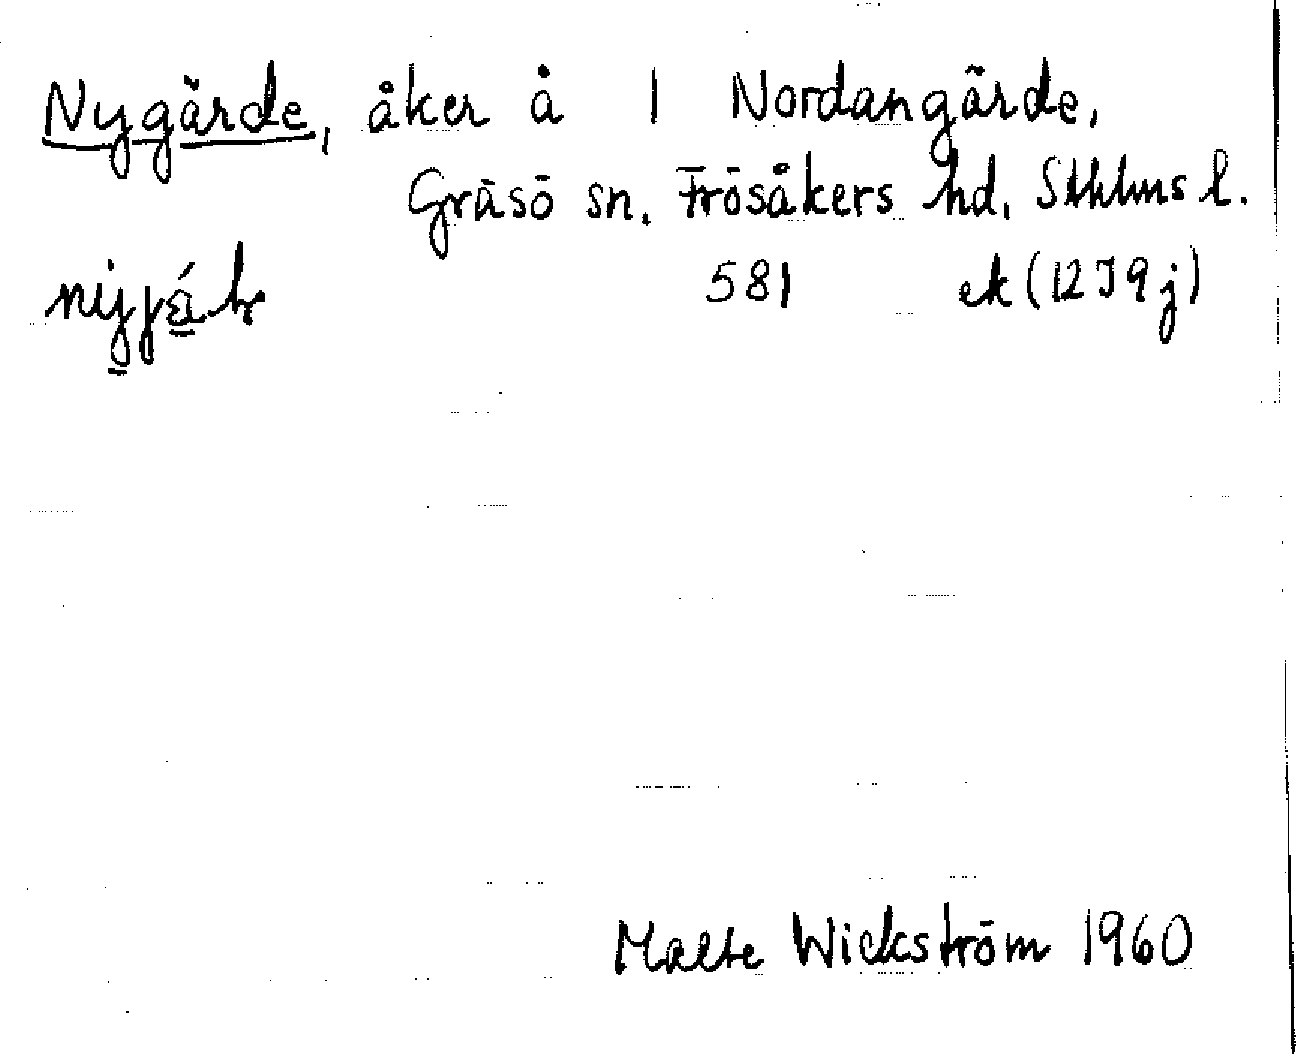 Nygärde, åker å 1 Nordangärde,
Gräsö sn. Frösåkers hd. Sthlms l.
581 ek (12I9j)
Malte Wickström 1960